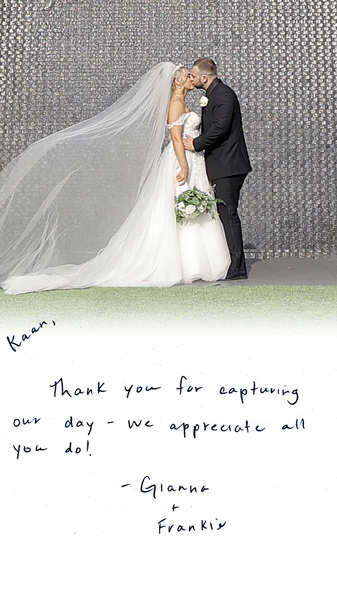 Kaan,
Thank you for capturing
our day - we appreciate all
you do!
- Gianna
+
Frankie